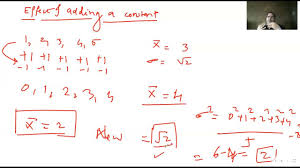 Effect of adding a constant
1, 2, 3, 4, 5
x̄ = 3
+1 +1 +1 +1 +1
σ = √2
-1 -1 -1 -1 -1
0, 1, 2, 3, 4
x̄ = 4
x̄ = 2
New = √2
0² + 1² + 2² + 3² + 4²
5
= 6 - 4 = 2